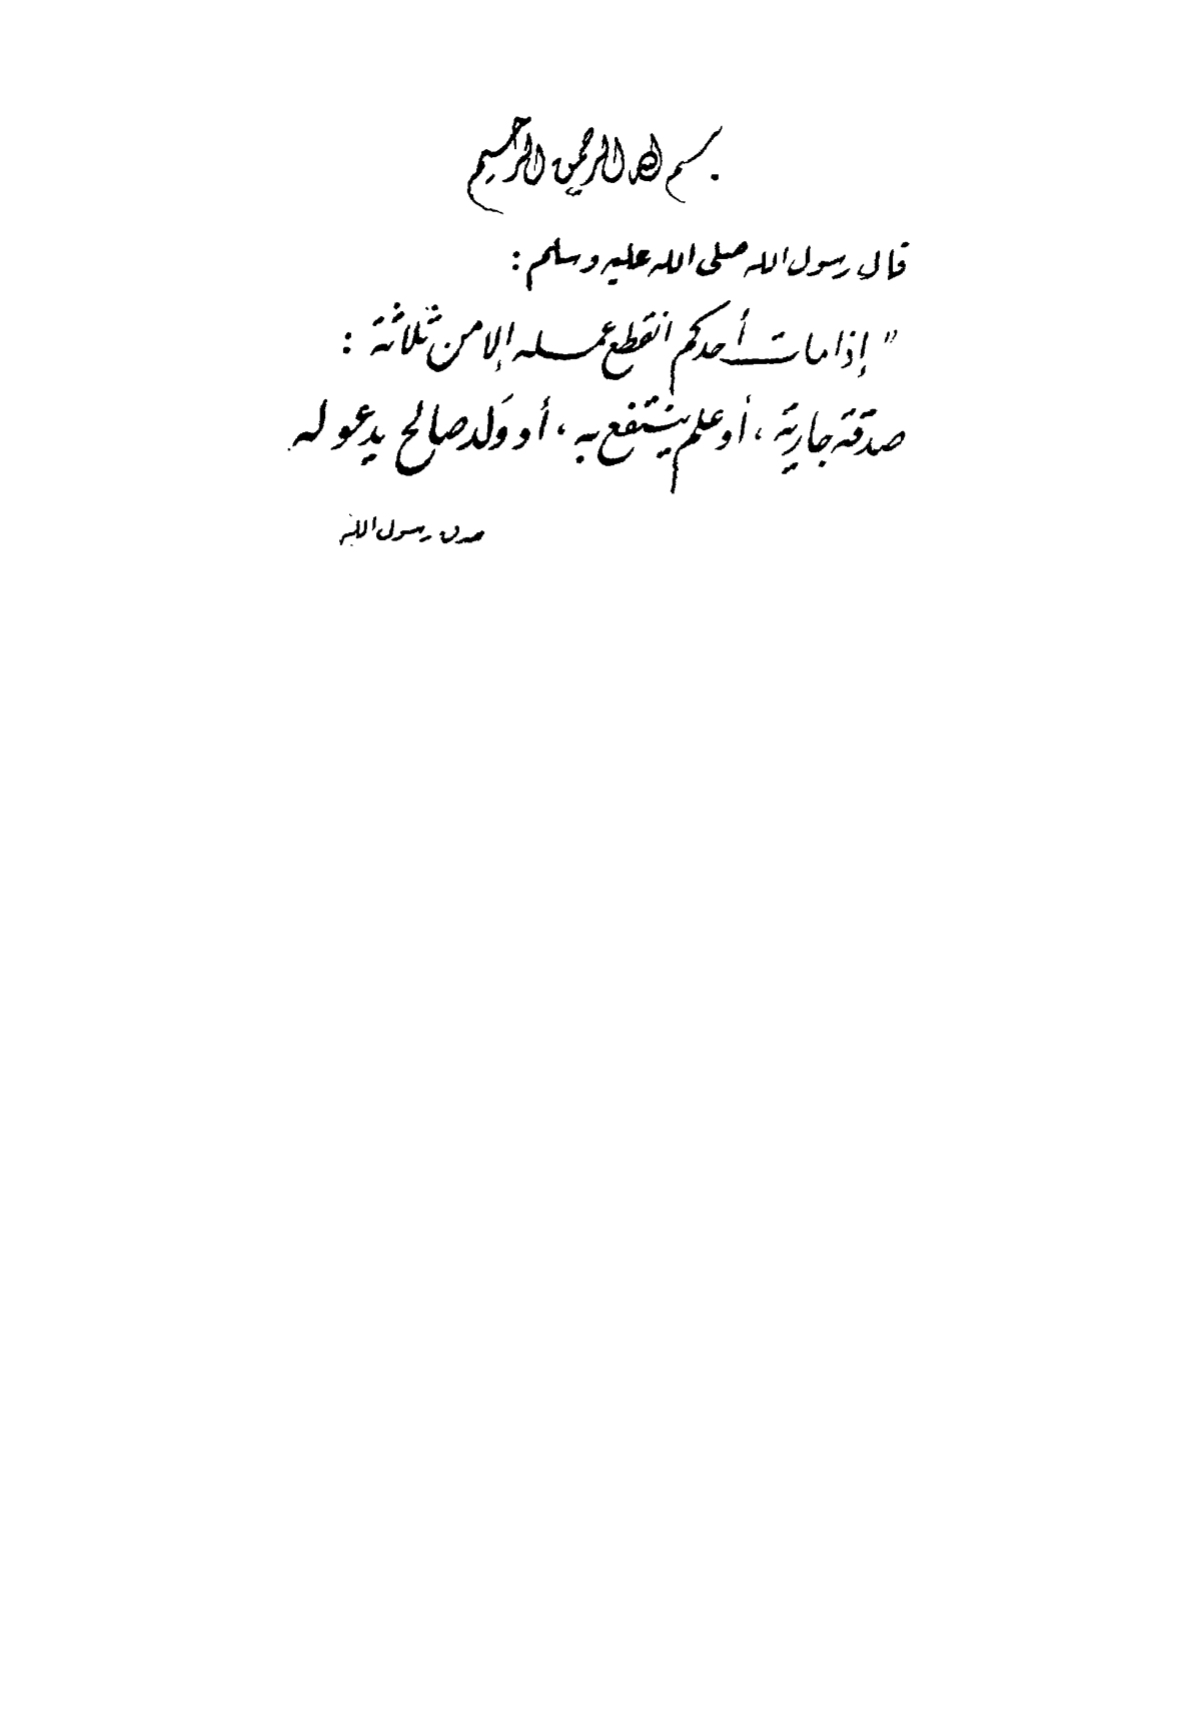 بسم الله الرحمن الرحيم
قال رسول الله صلى الله عليه وسلم :
" إذا مات أحدكم انقطع عمله إلا من ثلاثة :
صدقة جارية ، أو علم ينتفع به ، أو ولد صالح يدعو له
صدق رسول الله